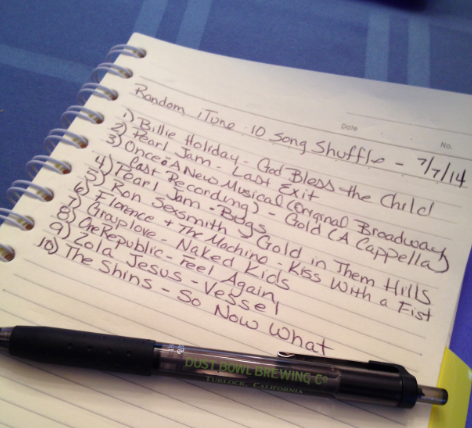 Date No.
Random iTune 10 Song Shuffle - 7/7/14
1) Billie Holiday - God Bless the Child
2) Pearl Jam - Last Exit
3) Once: A New Musical (Original Broadway
Cast Recording) - Gold (A Cappella)
4) Pearl Jam - Bugs
5) Ron Sexsmith - Gold in Them Hills
6) Florence + The Machine - Kiss With a Fist
7) Grouplove - Naked Kids
8) OneRepublic - Feel Again
9) Zola Jesus - Vessel
10) The Shins - So Now What
DUST BOWL BREWING CO.
TURLOCK, CALIFORNIA